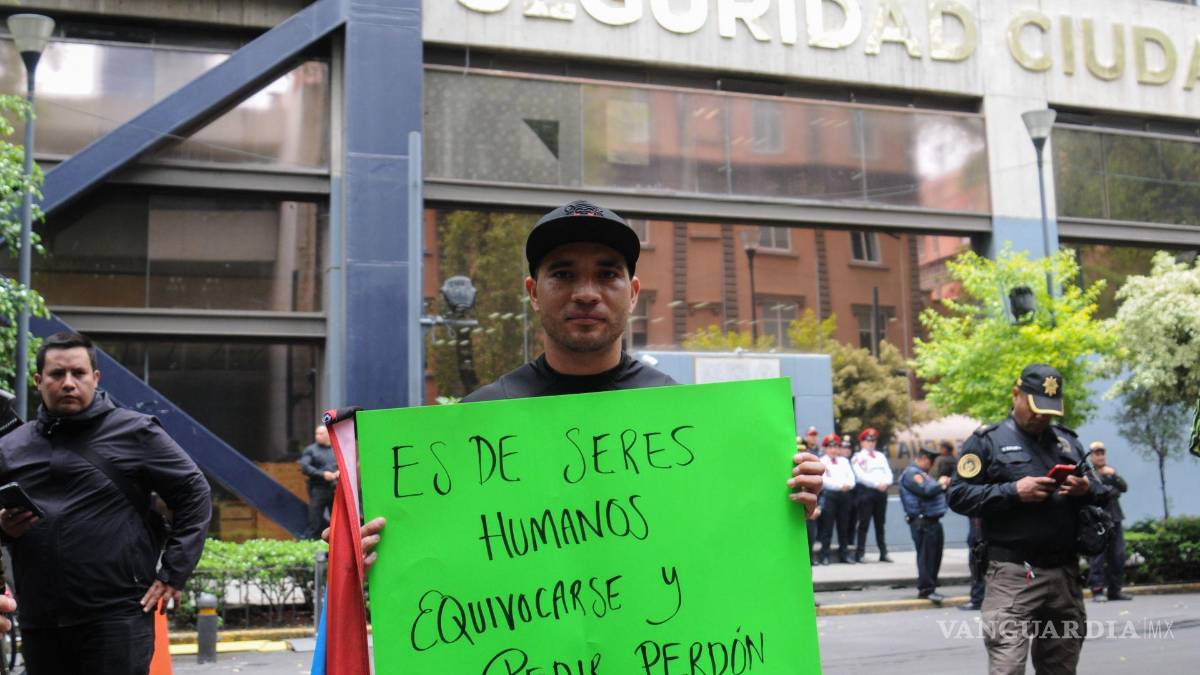 SEGURIDAD CIUDA
ES DE SERES
HUMANOS
EQUIVOCARSE y
PEDIR PERDÓN
VANGUARDIA|MX